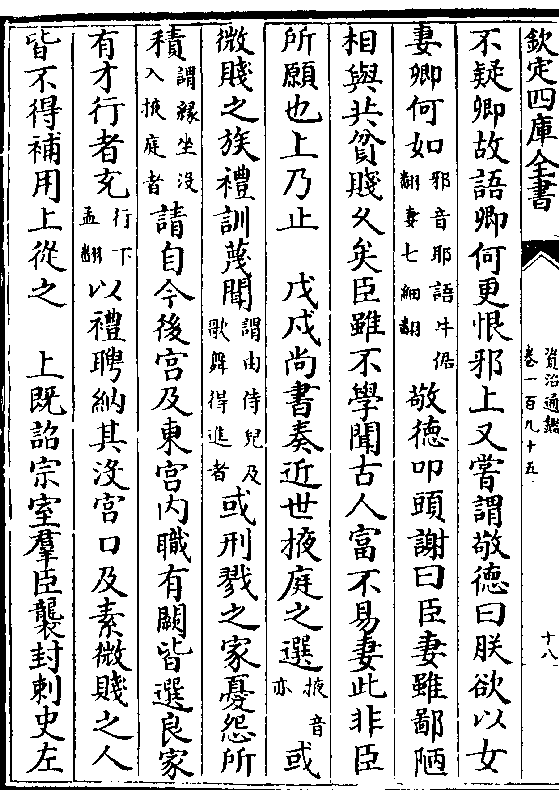 欽定四庫全書
資治通鑑
卷一百九十五
十八
不疑卿故語卿何更恨邪上又嘗謂敬德曰朕欲以女
妻卿何如邪音耶語牛倨翻妻七細翻敬德叩頭謝曰臣妻雖鄙陋
相與共貧賤久矣臣雖不學聞古人富不易妻此非臣
所願也上乃止　戊戌尚書奏近世掖庭之選掖音亦或
微賤之族禮訓蔑聞謂由侍兒及歌舞得進者或刑戮之家憂怨所
積謂緣坐沒入掖庭者請自今後宮及東宮内職有闕皆選良家
有才行者充行下孟翻以禮聘納其沒宮口及素微賤之人
皆不得補用上從之　上既詔宗室羣臣襲封刺史左